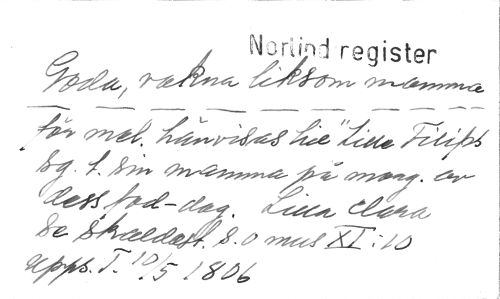 Norlind register
Goda, vakna liksom mamma
för mel. hänvisas till "Lilla Filips
sg. t. sin mamma på morg. av
dess föd-dag. Lilla Clara
Se Skaldest. s. o mus XI:10
Upps. T. 10/5 1806